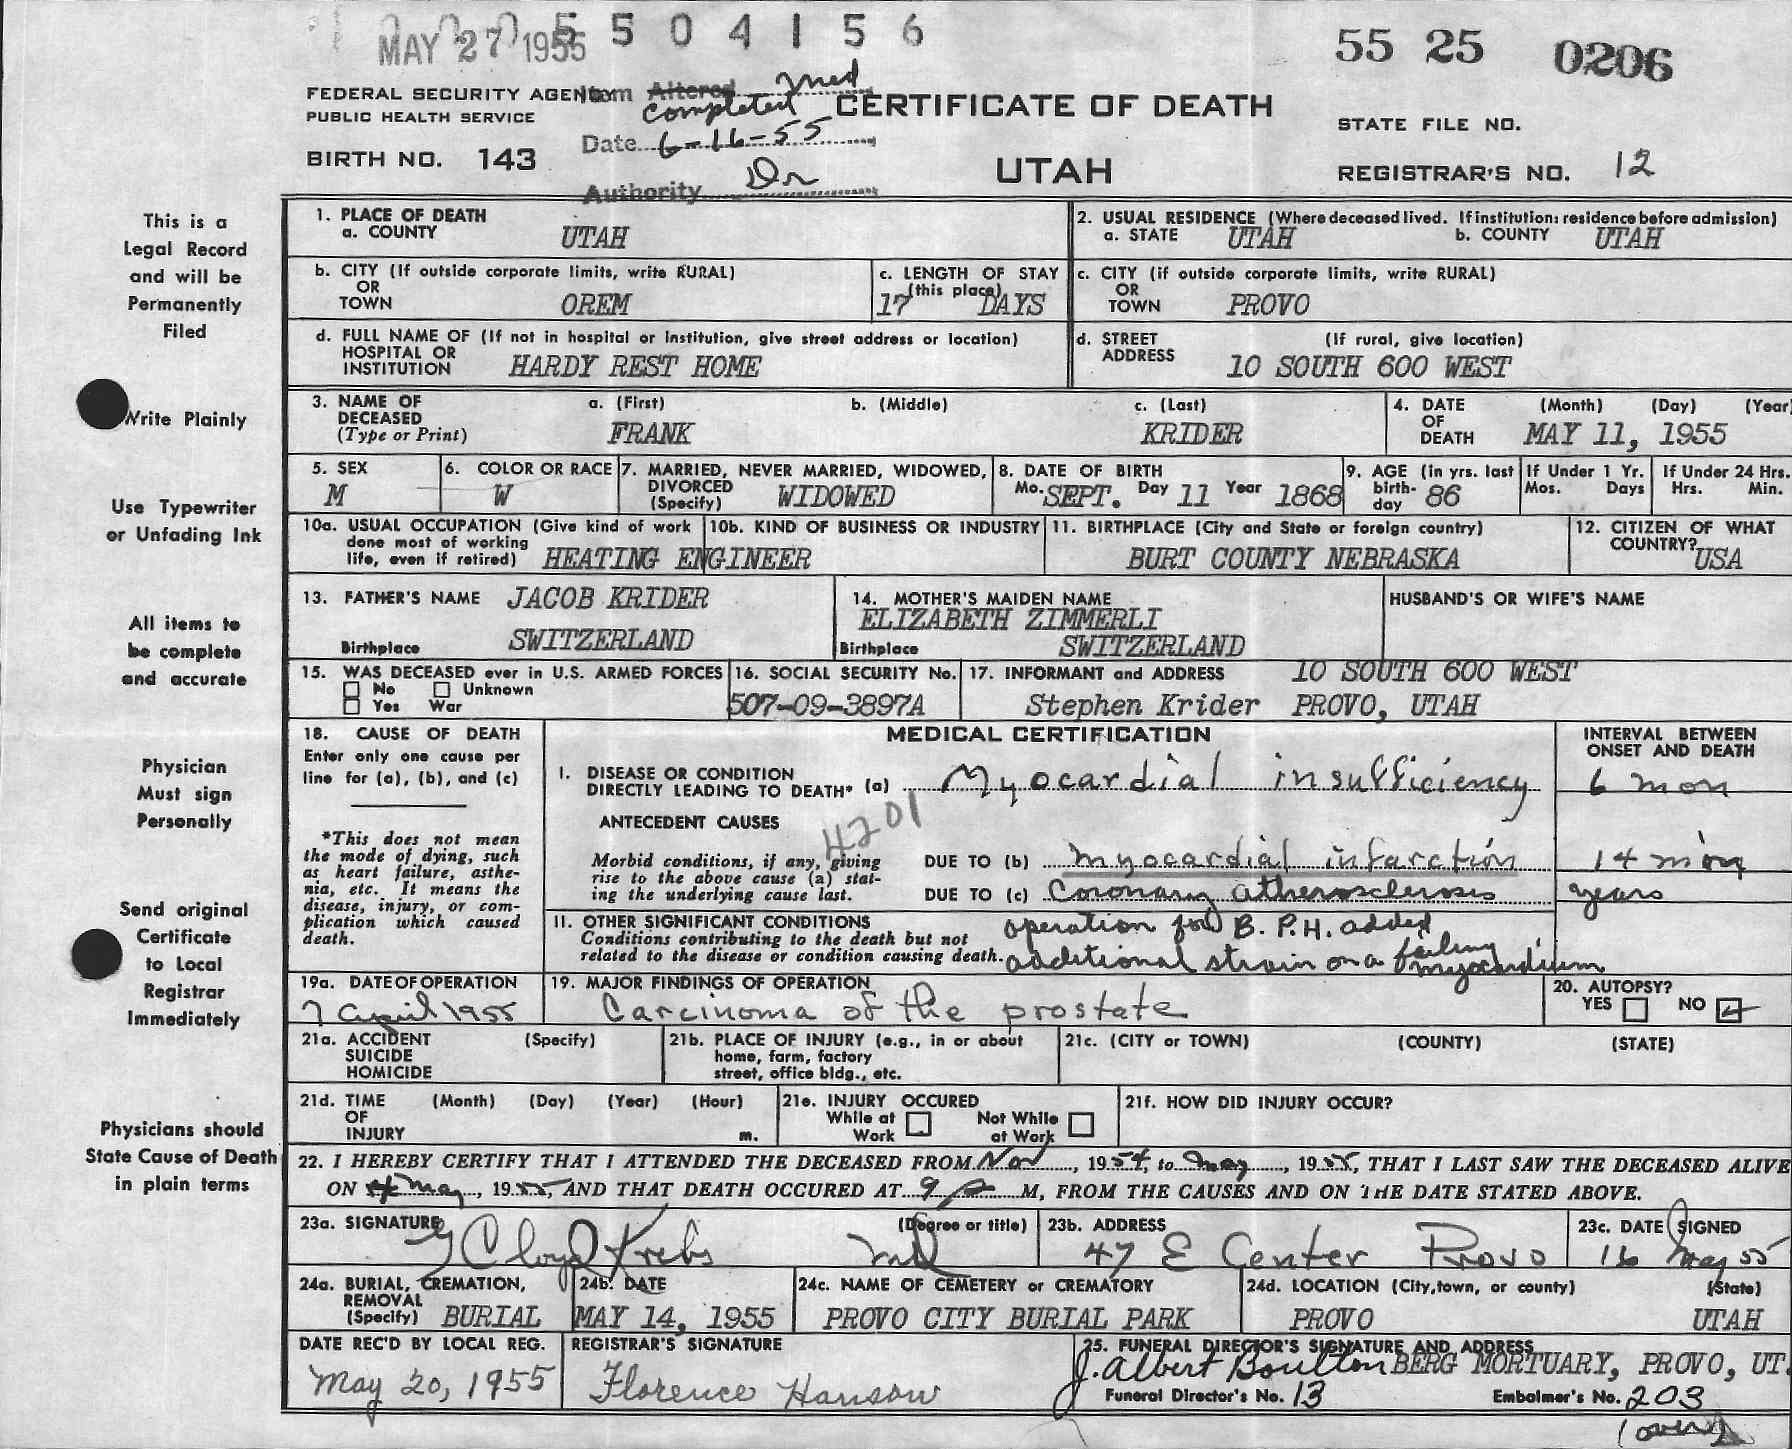 MAY 27 1955 5 5 0 4 1 5 6
55 25 0206
FEDERAL SECURITY AGENCY Item Altered med
PUBLIC HEALTH SERVICE completed
CERTIFICATE OF DEATH
STATE FILE NO.
BIRTH NO. 143
Date 6-16-55
UTAH
REGISTRAR'S NO. 12
Authority Dr
This is a
Legal Record
and will be
Permanently
Filed
Write Plainly
Use Typewriter
or Unfading Ink
All items to
be complete
and accurate
Physician
Must sign
Personally
Send original
Certificate
to Local
Registrar
Immediately
Physicians should
State Cause of Death
in plain terms
1. PLACE OF DEATH
a. COUNTY UTAH
2. USUAL RESIDENCE (Where deceased lived. If institution: residence before admission)
a. STATE UTAH b. COUNTY UTAH
b. CITY (If outside corporate limits, write RURAL)
OR
TOWN OREM
c. LENGTH OF STAY
(this place)
17 DAYS
c. CITY (if outside corporate limits, write RURAL)
OR
TOWN PROVO
d. FULL NAME OF (If not in hospital or Institution, give street address or location)
HOSPITAL OR
INSTITUTION HARDY REST HOME
d. STREET (If rural, give location)
ADDRESS
10 SOUTH 600 WEST
3. NAME OF a. (First) b. (Middle) c. (Last)
DECEASED
(Type or Print) FRANK KRIDER
4. DATE (Month) (Day) (Year)
OF
DEATH MAY 11, 1955
5. SEX
M
6. COLOR OR RACE
W
7. MARRIED, NEVER MARRIED, WIDOWED,
DIVORCED
(Specify) WIDOWED
8. DATE OF BIRTH
Mo. SEPT. Day 11 Year 1868
9. AGE (in yrs. last
birth- 86
day
If Under 1 Yr.
Mos. Days
If Under 24 Hrs.
Hrs. Min.
10a. USUAL OCCUPATION (Give kind of work
done most of working
life, even if retired) HEATING ENGINEER
10b. KIND OF BUSINESS OR INDUSTRY
11. BIRTHPLACE (City and State or foreign country)
BURT COUNTY NEBRASKA
12. CITIZEN OF WHAT
COUNTRY?
USA
13. FATHER'S NAME JACOB KRIDER
Birthplace SWITZERLAND
14. MOTHER'S MAIDEN NAME
ELIZABETH ZIMMERLI
Birthplace SWITZERLAND
HUSBAND'S OR WIFE'S NAME
15. WAS DECEASED ever in U.S. ARMED FORCES
No Unknown
Yes War
16. SOCIAL SECURITY No.
507-09-3897A
17. INFORMANT and ADDRESS 10 SOUTH 600 WEST
Stephen Krider PROVO, UTAH
18. CAUSE OF DEATH
Enter only one cause per
line for (a), (b), and (c)
*This does not mean
the mode of dying, such
as heart failure, asthe-
nia, etc. It means the
disease, injury, or com-
plication which caused
death.
MEDICAL CERTIFICATION
INTERVAL BETWEEN
ONSET AND DEATH
I. DISEASE OR CONDITION
DIRECTLY LEADING TO DEATH* (a) Myocardial insufficiency 6 mon
ANTECEDENT CAUSES 4201
Morbid conditions, if any, giving
rise to the above cause (a) stat-
ing the underlying cause last.
DUE TO (b) myocardial infarction 14 mon
DUE TO (c) Coronary atherosclerosis years
II. OTHER SIGNIFICANT CONDITIONS
Conditions contributing to the death but not
related to the disease or condition causing death.
operation for B.P.H. added
additional strain on a failing
myocardium
19a. DATE OF OPERATION
7 April 1955
19. MAJOR FINDINGS OF OPERATION
Carcinoma of the prostate
20. AUTOPSY?
YES NO
21a. ACCIDENT (Specify)
SUICIDE
HOMICIDE
21b. PLACE OF INJURY (e.g., in or about
home, farm, factory
street, office bldg., etc.
21c. (CITY or TOWN) (COUNTY) (STATE)
21d. TIME (Month) (Day) (Year) (Hour)
OF
INJURY m.
21e. INJURY OCCURED
While at Not While
Work at Work
21f. HOW DID INJURY OCCUR?
22. I HEREBY CERTIFY THAT I ATTENDED THE DECEASED FROM Nov, 1954, to May, 1955, THAT I LAST SAW THE DECEASED ALIVE
ON May, 1955, AND THAT DEATH OCCURED AT 9 p M, FROM THE CAUSES AND ON THE DATE STATED ABOVE.
23a. SIGNATURE (Degree or title)
Cloyd Krebs MD
23b. ADDRESS
47 E Center Provo
23c. DATE SIGNED
16 May 55
24a. BURIAL, CREMATION,
REMOVAL
(Specify) BURIAL
24b. DATE
MAY 14, 1955
24c. NAME OF CEMETERY or CREMATORY
PROVO CITY BURIAL PARK
24d. LOCATION (City, town, or county) (State)
PROVO UTAH
DATE REC'D BY LOCAL REG.
May 20, 1955
REGISTRAR'S SIGNATURE
Florence Hanson
25. FUNERAL DIRECTOR'S SIGNATURE AND ADDRESS
J. Albert Boulton BERG MORTUARY, PROVO, UT.
Funeral Director's No. 13 Embalmer's No. 203
(over)